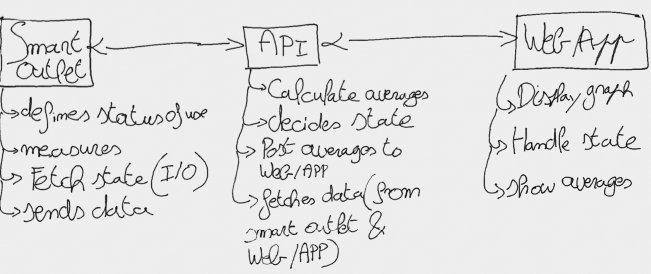 Smart
Outlet
API
Web-App
defines status of use
measures
Fetch state (I/O)
sends data
Calculate averages
decides state
Post averages to
Web/APP
fetches data (from
smart outlet &
Web/APP)
Display graph
Handle state
show averages